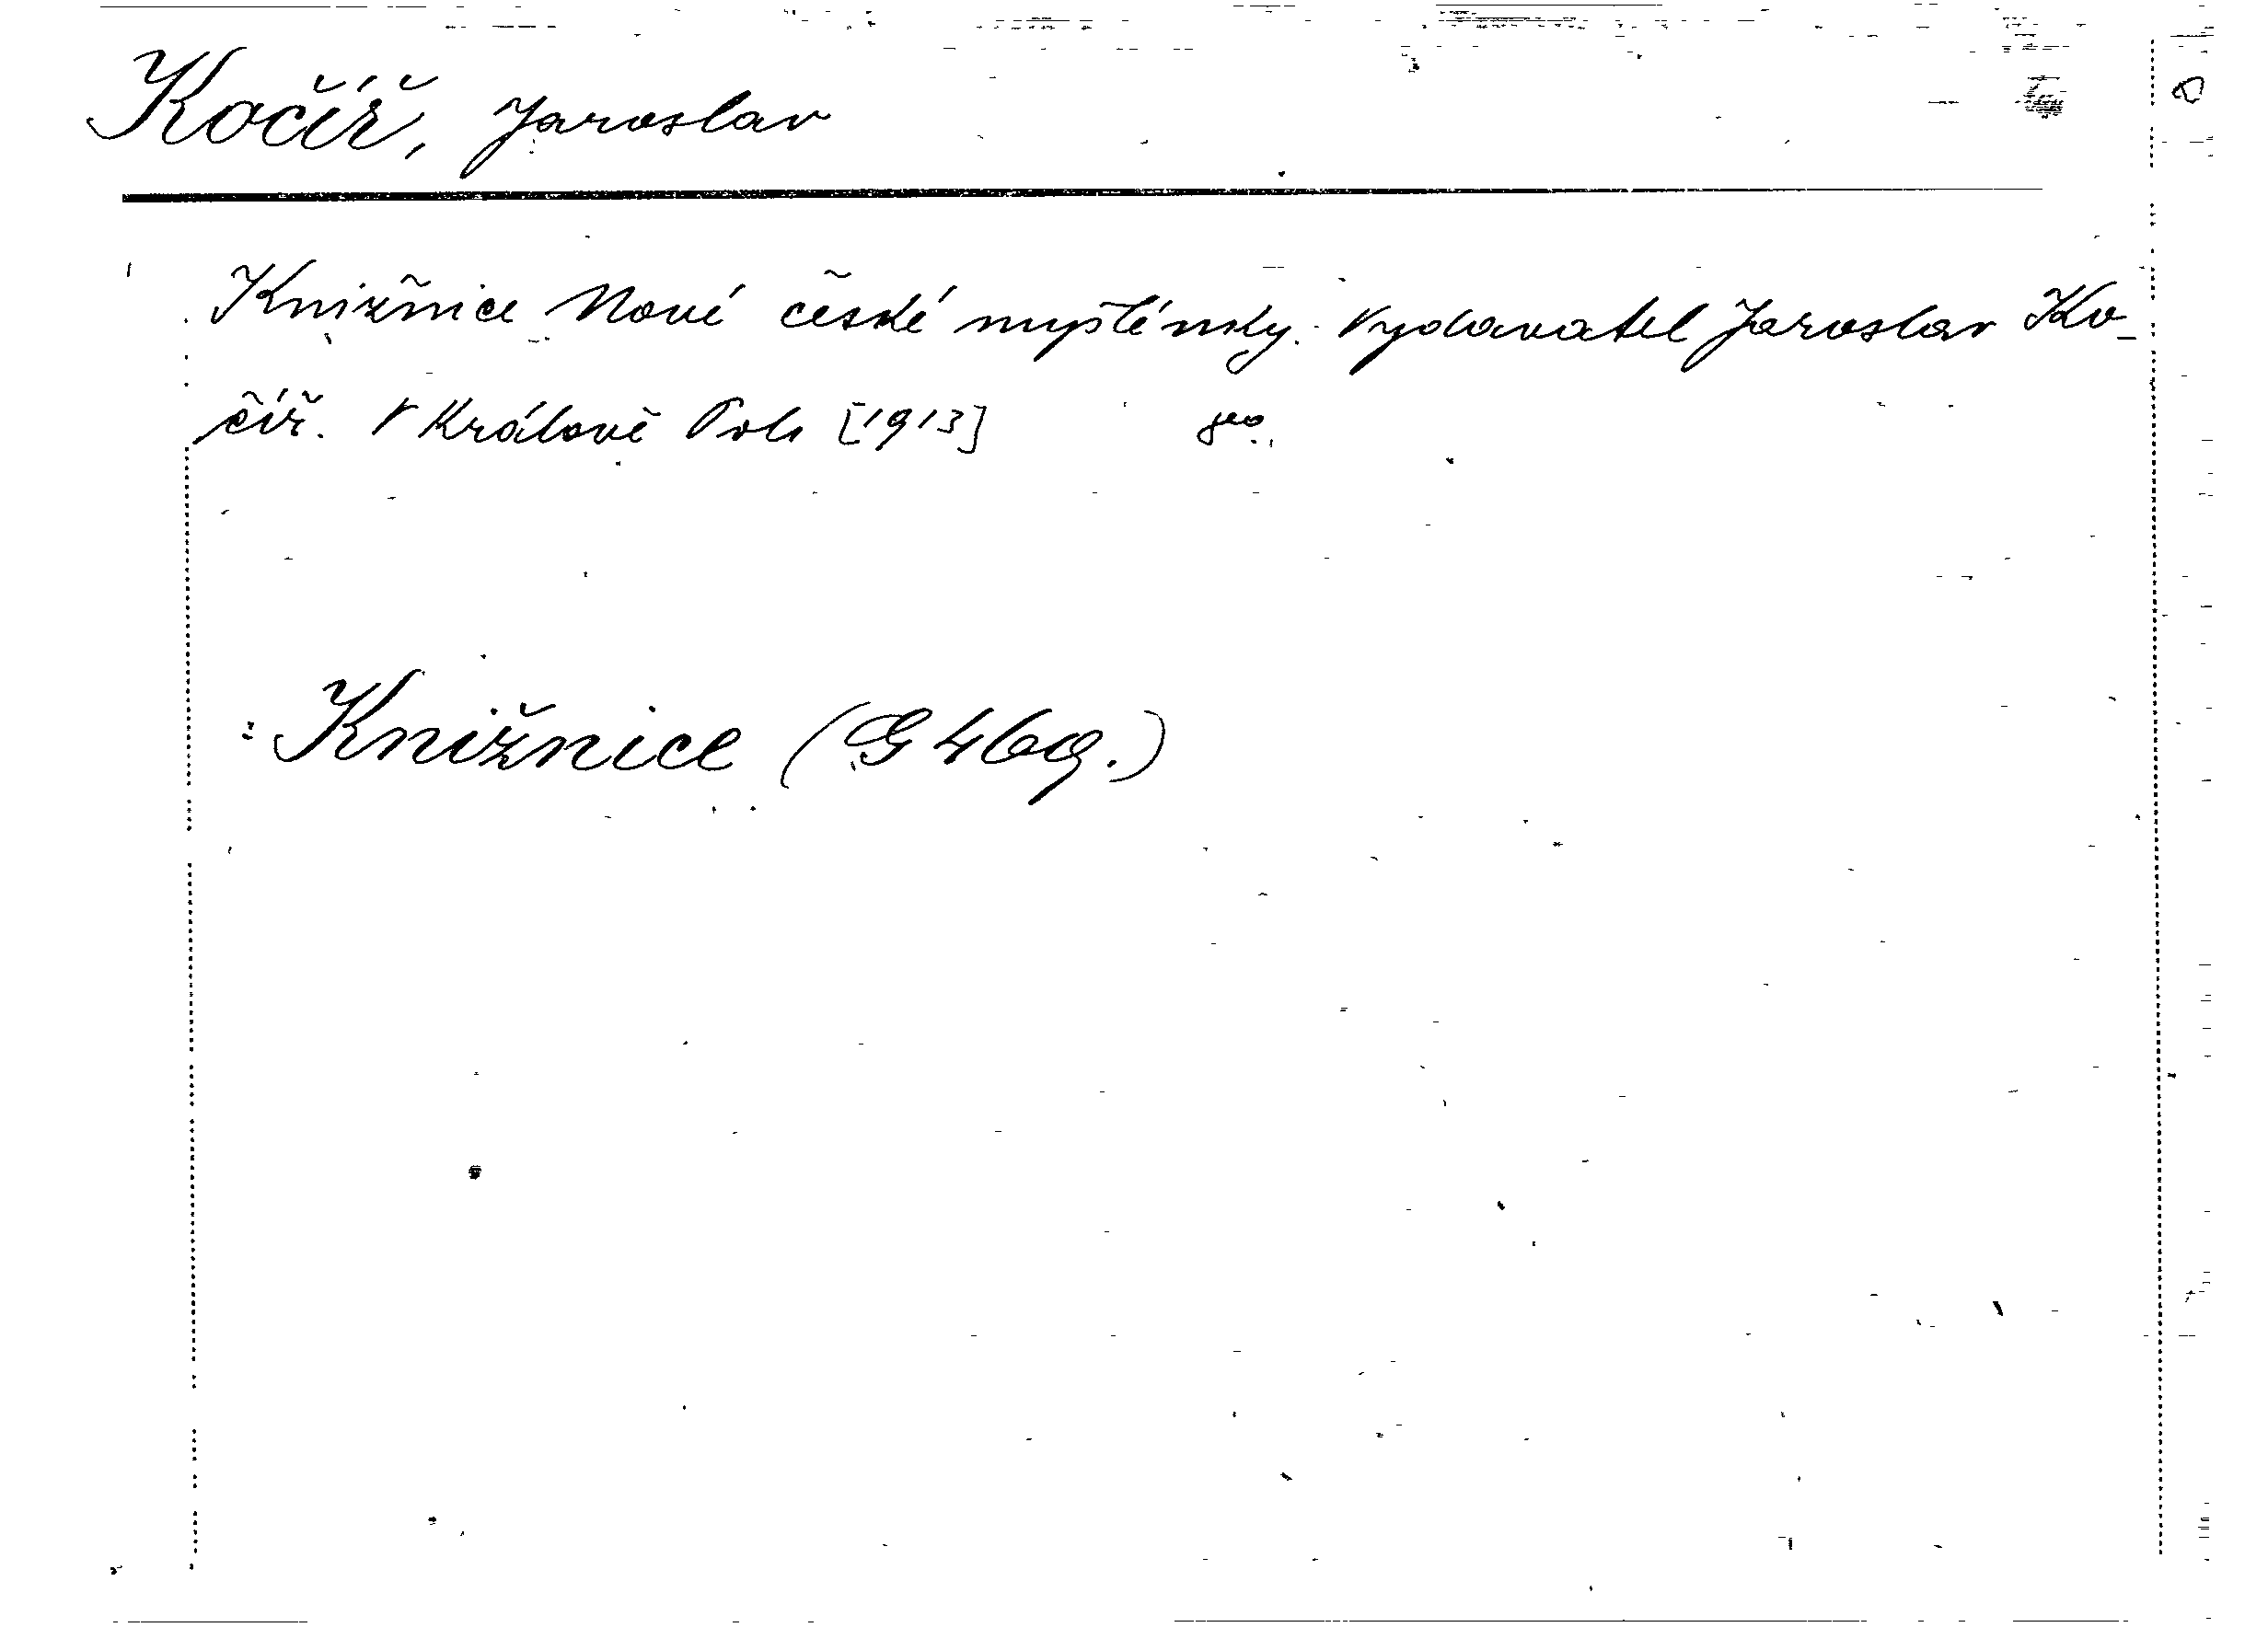 Kočíř, Jaroslav
Knižnice Nové české myšlénky. Vydavatel Jaroslav Ko-
číř. V Králově Poli [1913] 8º.
Knižnice (G 469.)